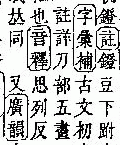 鐙註鐙豆下跗
字彙補古文初
註詳刀部五畫
也音釋思列反
同又廣韻